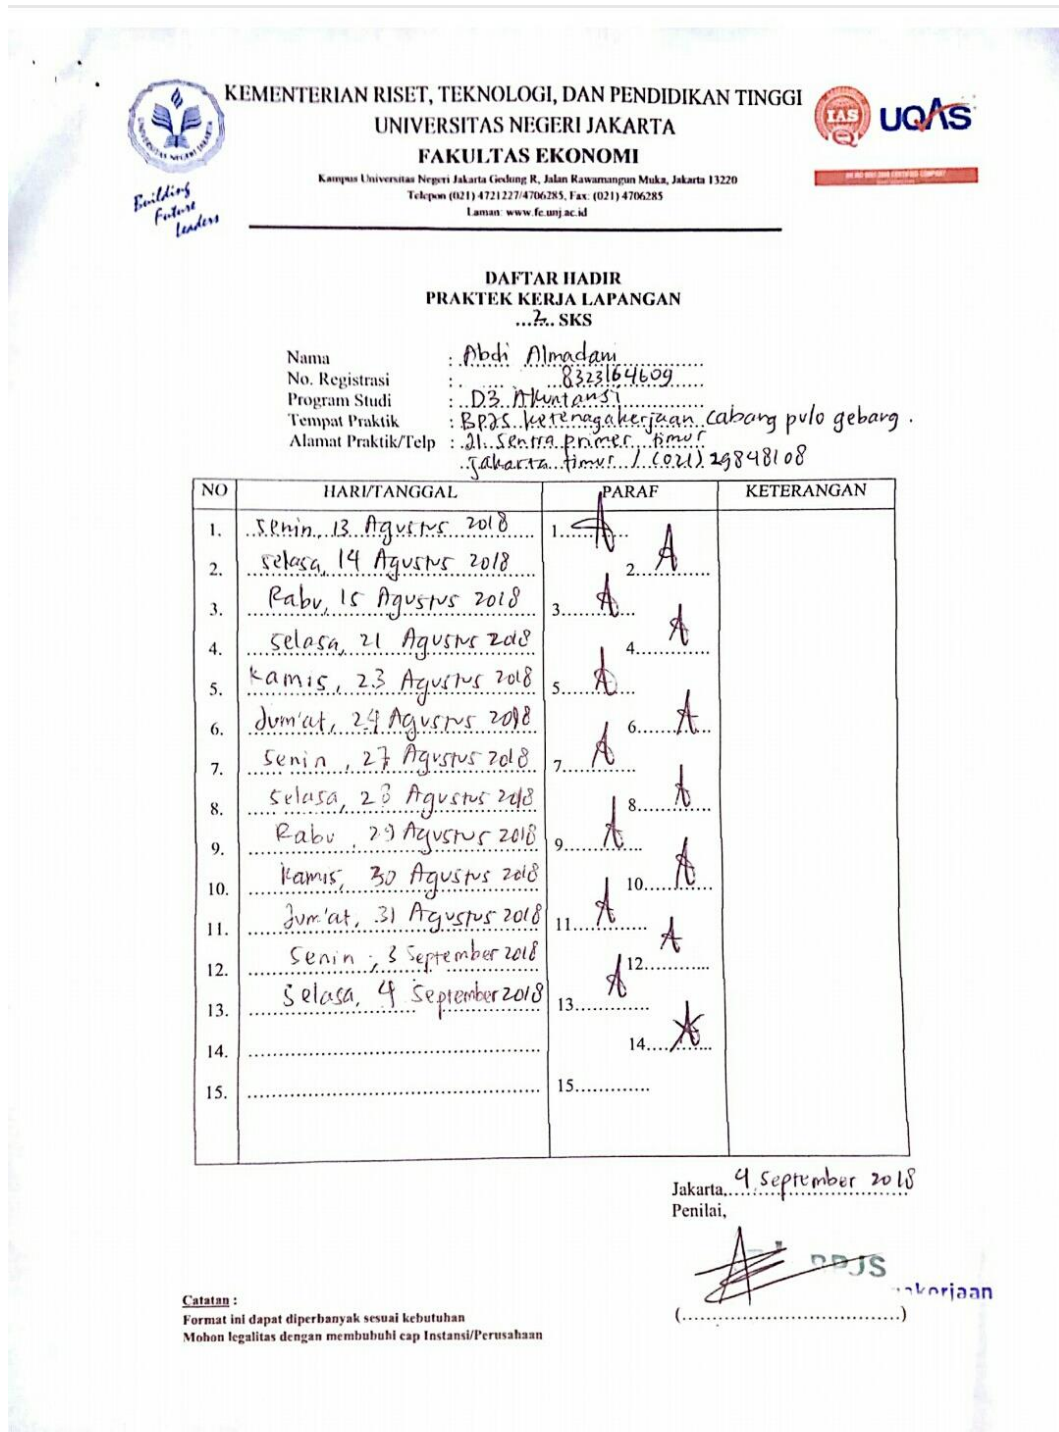 KEMENTERIAN RISET, TEKNOLOGI, DAN PENDIDIKAN TINGGI
UNIVERSITAS NEGERI JAKARTA
FAKULTAS EKONOMI
Kampus Universitas Negeri Jakarta Gedung R, Jalan Rawamangun Muka, Jakarta 13220
Telepon (021) 4721227/4706285, Fax: (021) 4706285
Laman: www.fe.unj.ac.id
UNIVERSITAS NEGERI JAKARTA
Building
Future
Leaders
IAS
UQAS
DAFTAR HADIR
PRAKTEK KERJA LAPANGAN
...2.. SKS
Nama : Abdi Almadani
No. Registrasi : 8323164609
Program Studi : D3 Akuntansi
Tempat Praktik : BPJS Ketenagakerjaan Cabang pulo gebang .
Alamat Praktik/Telp : Jl. Sentra primer timur
Jakarta timur / (021) 29848108
NO HARI/TANGGAL PARAF KETERANGAN
1. Senin, 13 Agustus 2018 1.
2. Selasa, 14 Agustus 2018 2.
3. Rabu, 15 Agustus 2018 3.
4. Selasa, 21 Agustus 2018 4.
5. Kamis, 23 Agustus 2018 5.
6. Jum'at, 24 Agustus 2018 6.
7. Senin, 27 Agustus 2018 7.
8. Selasa, 28 Agustus 2018 8.
9. Rabu, 29 Agustus 2018 9.
10. Kamis, 30 Agustus 2018 10.
11. Jum'at, 31 Agustus 2018 11.
12. Senin, 3 September 2018 12.
13. Selasa, 4 September 2018 13.
14. 14.
15. 15.
Jakarta, 4 September 2018
Penilai,
BPJS
(..................................)
Catatan :
Format ini dapat diperbanyak sesuai kebutuhan
Mohon legalitas dengan membubuhi cap Instansi/Perusahaan